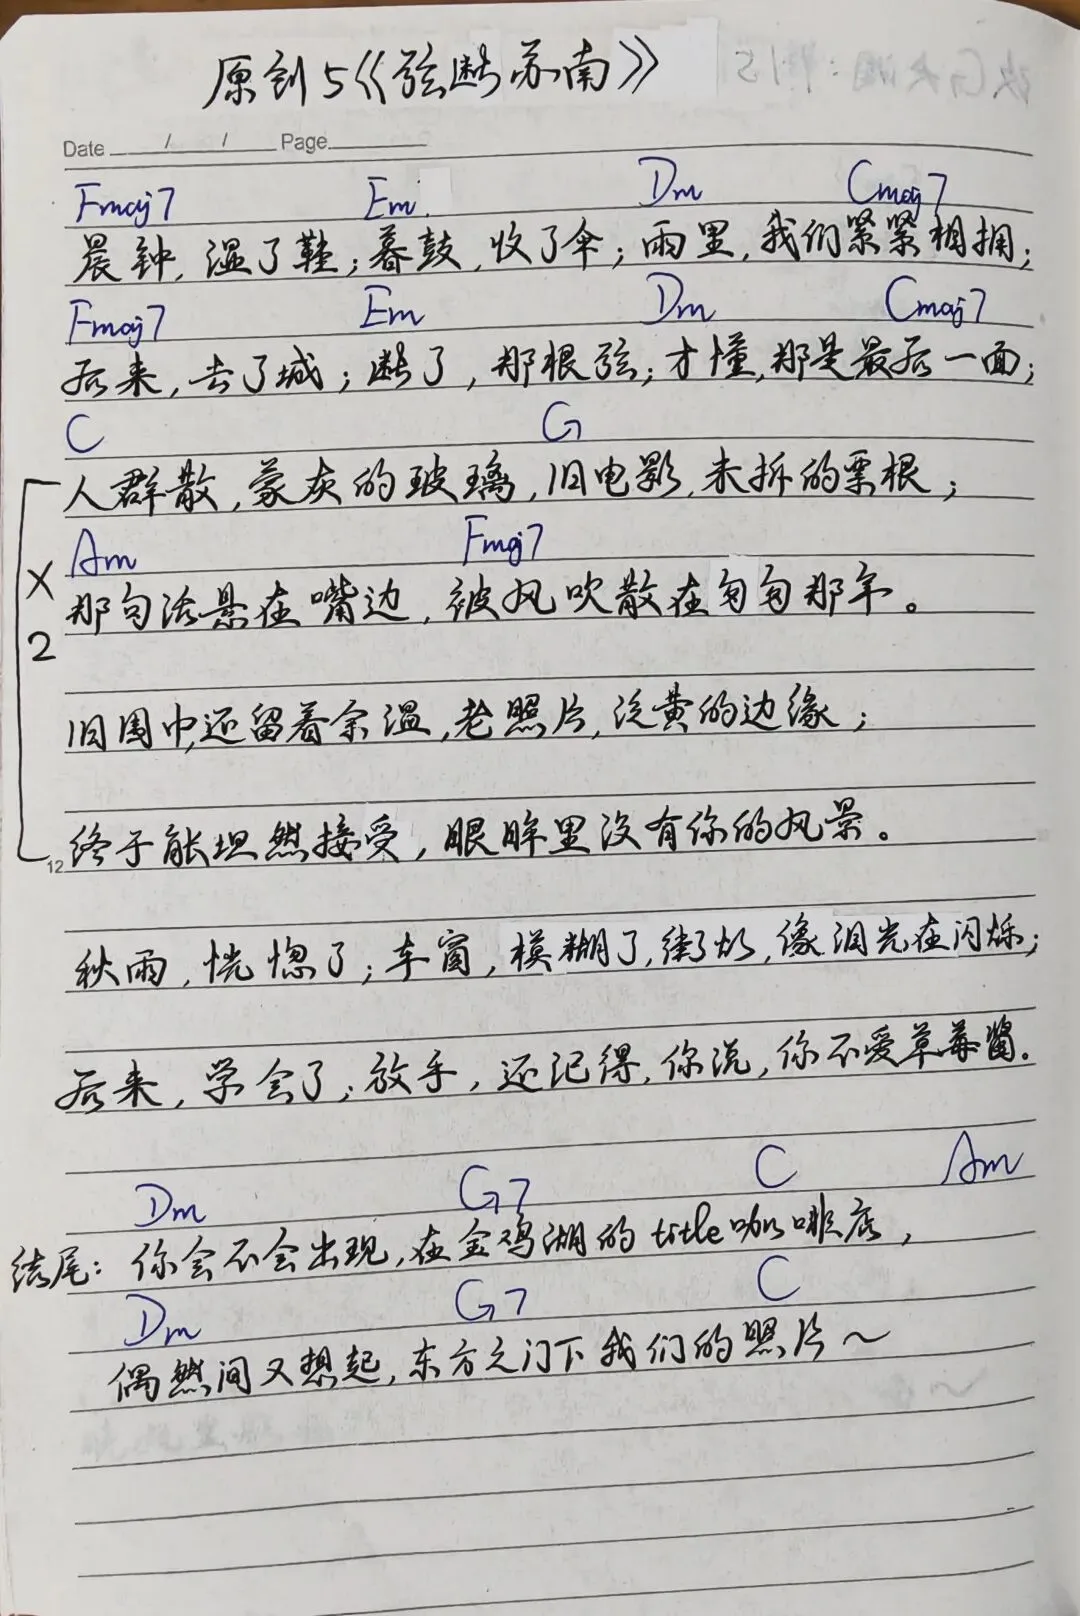 原创5《弦断苏南》
Date / / Page
Fmaj7 Em Dm Cmaj7
晨钟,湿了鞋;暮鼓,收了伞;雨里,我们紧紧相拥;
Fmaj7 Em Dm Cmaj7
后来,去了城;断了,那根弦;才懂,那是最后一面;
C G
人群散,蒙灰的玻璃,旧电影,未拆的票根;
Am Fmaj7
那句话悬在嘴边,被风吹散在匆匆那年。
旧围巾,还留着余温,老照片,泛黄的边缘;
终于能坦然接受,眼眸里没有你的风景。
秋雨,恍惚了;车窗,模糊了,街灯,像泪光在闪烁;
后来,学会了,放手,还记得,你说,你不爱草莓酱.
Dm G7 C Am
结尾:你会不会出现,在金鸡湖的title咖啡店,
Dm G7 C
偶然间又想起,东方之门下我们的照片~
X
2
12